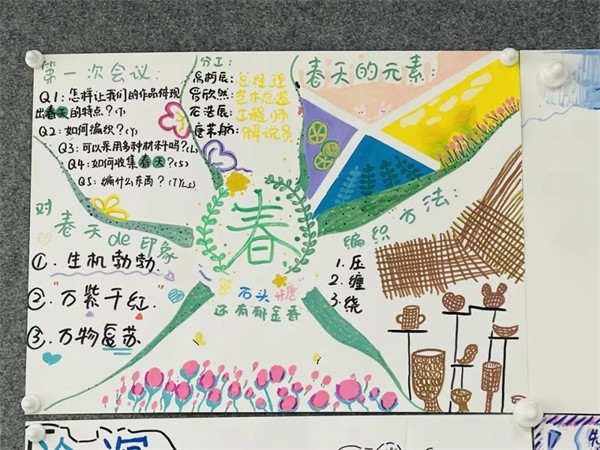 第一次会议:
Q1: 怎样让我们的作品体现
出春天的特点?(T)
Q2: 如何编织?(Y)
Q3: 可以采用多种材料吗?(L)
Q4: 如何收集春天?(S)
Q5: 编什么东西?
分工:
总经理
艺术总监
工程师
解说员
春天的元素:
对春天de印象
①. 生机勃勃.
②. "万紫千红"
③. 万物复苏
春
石头
还有郁金香
编织方法:
1. 压
2. 缠
3. 绕